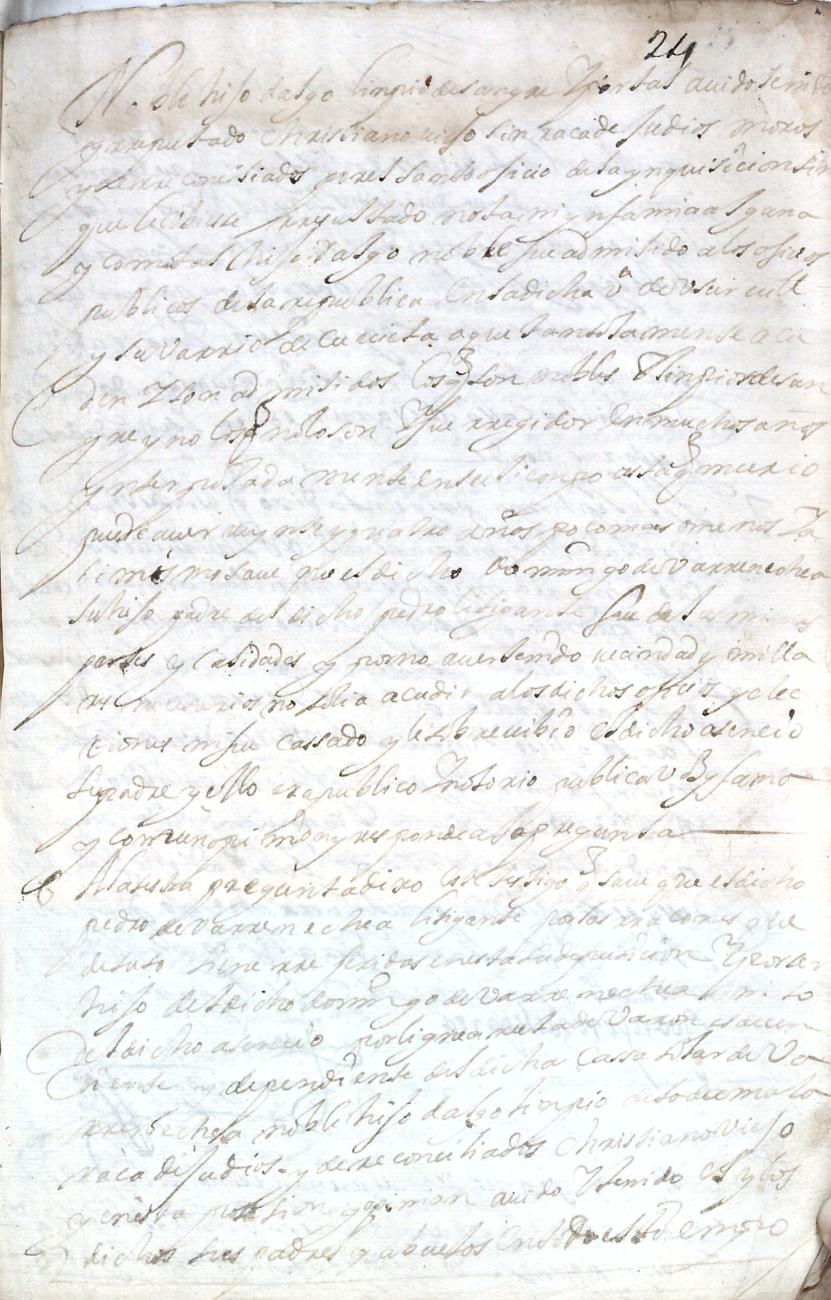 24
Noble hijo dalgo limpio de sangre y por tal auido tenido
y rreputado christiano viejo sin raca de judios moros
y de rreconciliados por el santo oficio de la ynquisicion sin
que le ubiese rresultado nota ni ynfamia alguna
y como tal hijo dalgo noble fue admitido a los oficios
publicos de la republica en la dicha vª de
y su varrio de a que tan solamente acu
den y son admitidos los q son nobles y limpios de san
gre y no los q no lo son y fue rregidor en muchos años
ynterpuladamente en su tiempo asta q murio
puede auer veynte y quatro años poco mas o menos y a
si mismo saue que el dicho Domingo de varrenechea
su hijo padre del dicho pedro litigante fue de las mismas
partes y calidades y por no auer tenido vecindad y milla
res necesarios no solia acudir a los dichos oficios y elec
ciones ni fue cassado y le sobrebibio el dicho asencio
su padre y ello era publico y notorio publica voz y fama
y comun opinion y responde a la pregunta
A la sesta pregunta dixo este testigo q saue que el dicho
pedro de varrenechea litigante por las rracones que
de suso tiene rreferidas en esta su deposicion y por ser
hijo del dicho domingo de varrenechea y nieto
del dicho asencio por linea recta de varon es decen
diente y dependiente de la dicha cassa solar de va
rrenechea noble hijo dalgo limpio de toda mala
raca de judios y de rreconciliados christiano viejo
y en esta posesion y opinion auido y tenido el y los
dichos sus padres y abuelos en todo su tiempo